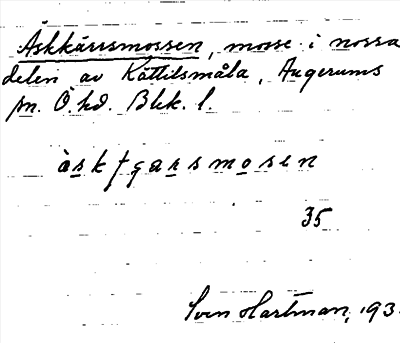 Äskkärrsmossen, mosse i norra
delen av Kättilsmåla, Augerums
sn. Ö. hd. Blek. l.
35
Sven Hartman, 193